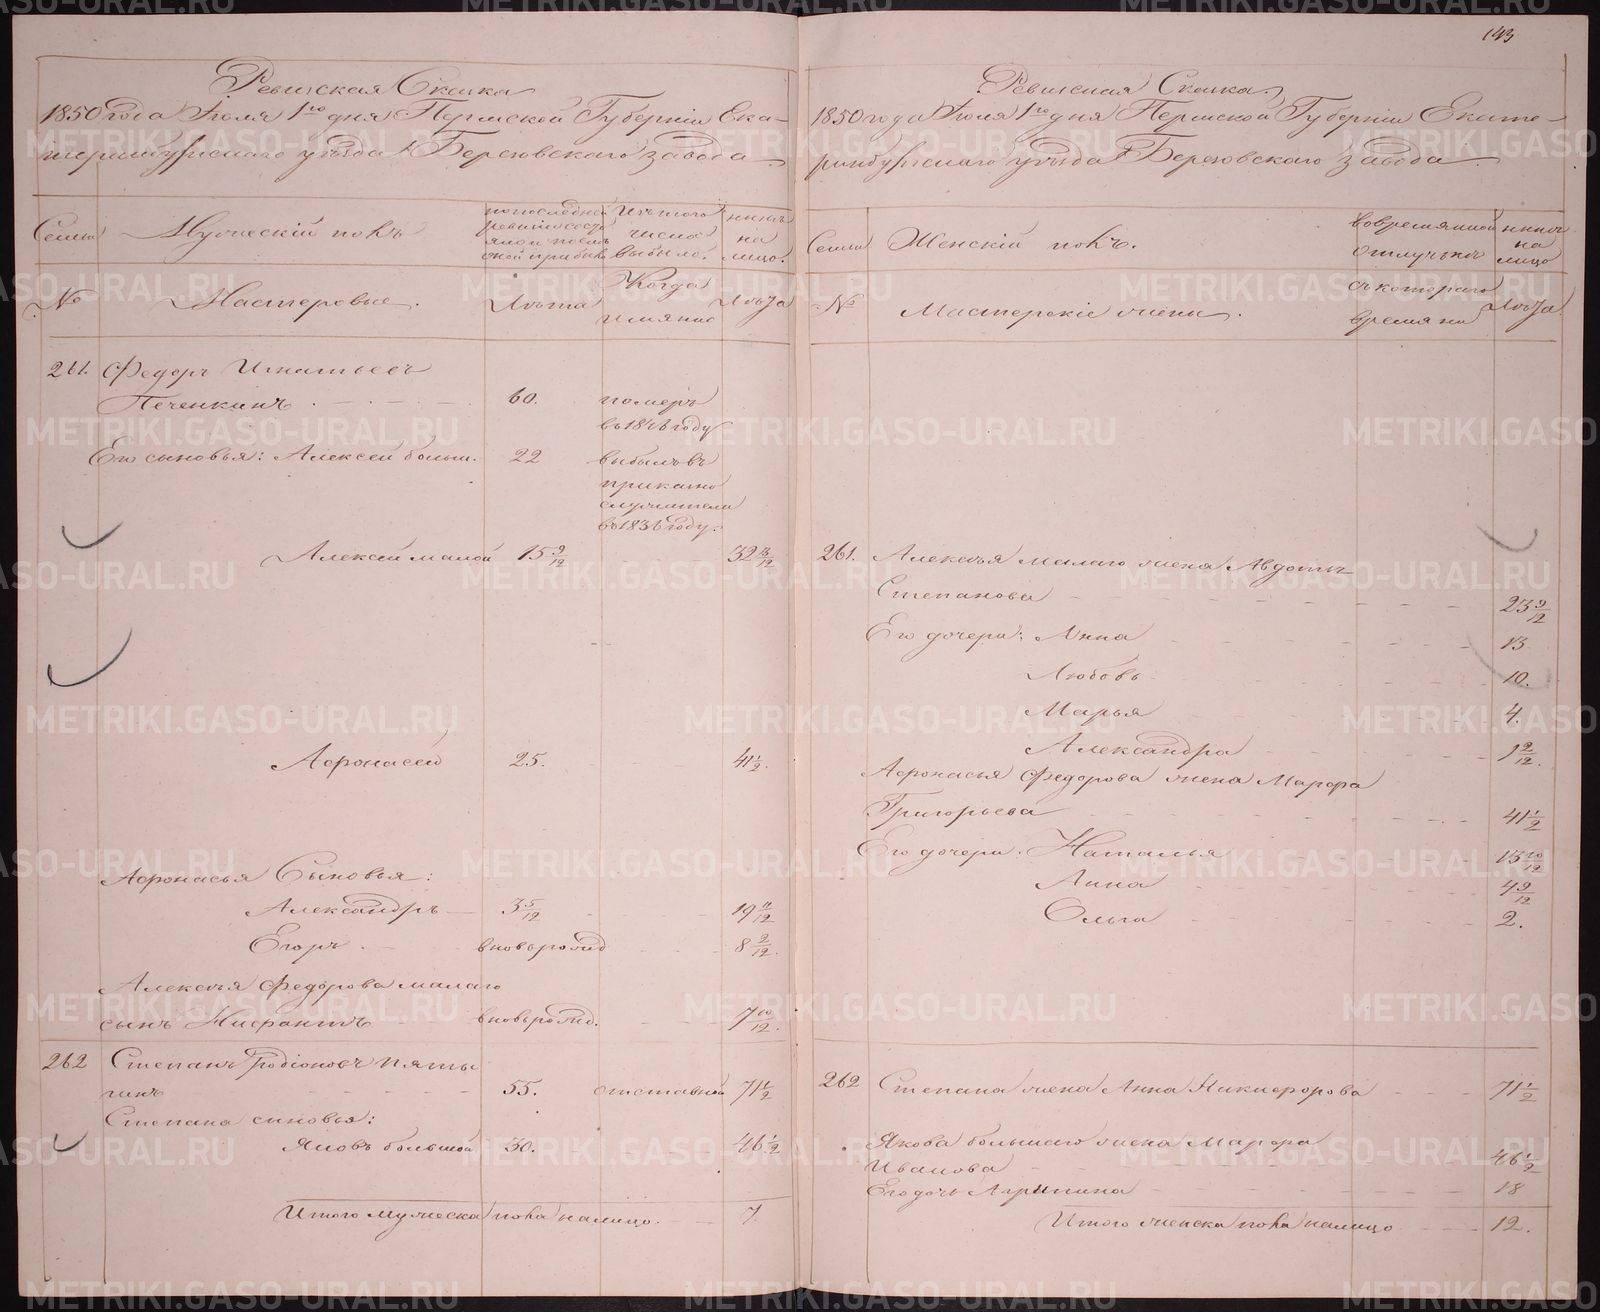 143
Ревижская Скаска
1850 года Июля 1го дня Пермской Губернiи Ека-
теринбургскаго уѣзда Березовскаго завода
Семьи
Мужескiй полъ
по последней ревизiи состояло и после оной прибыло
Изъ того числа выбыло.
ныне на лицо.
№
Мастеровые.
Лѣта
Когда именно
Лѣта
261. Федоръ Игнатьевъ
Печенкинъ 60. померъ
въ 1846 году
Его сыновья: Алексей больш. 22 выбылъ въ
приказно
служители
въ 1836 году.
Алексей малой 15 9/12 32 3/12
Афонасей 25. 41 1/2.
Афонасья Сыновья:
Александръ 3 5/12 19 11/12
Егоръ вновьрожд 8 2/12.
Алексея Федорова малаго
сынъ Нифантъ вновьрожд. 7 10/12.
262 Степанъ Родiоновъ Пяты
гинъ 55. отставной 71 1/2
Степана сыновья:
Яковъ большой 30. 46 1/2
Итого мужеска пола налицо 7
Ревижская Скаска
1850 года Июля 1го дня Пермской Губернiи Екате-
ринбургскаго уѣзда Березовскаго завода
Семьи
Женскiй полъ.
во временной отлучкѣ
ныне на лицо
№
Мастерскiе жены.
съ котораго времяни
Лѣта
261. Алексѣя малаго жена Авдотья
Степанова 23 9/12
Его дочери: Анна 13
Любовь 10.
Марья 4.
Александра 1 2/12.
Афонасья Федорова жена Марфа
Григорьева 41 1/2
Его дочери: Наталья 13 10/12
Анна 4 9/12
Ольга 2.
262 Степана жена Анна Никифорова 71 1/2
Якова большаго жена Марфа
Иванова 46 1/2
Его дочь Агрипина 18
Итого женска пола налицо 12.
METRIKI.GASO-URAL.RU